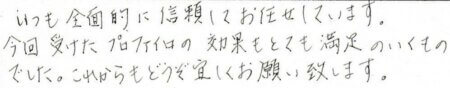 いつも全面的に信頼してお任せしています。
今回受けたプロファイロの効果もとても満足のいくもの
でした。これからもどうぞ宜しくお願い致します。